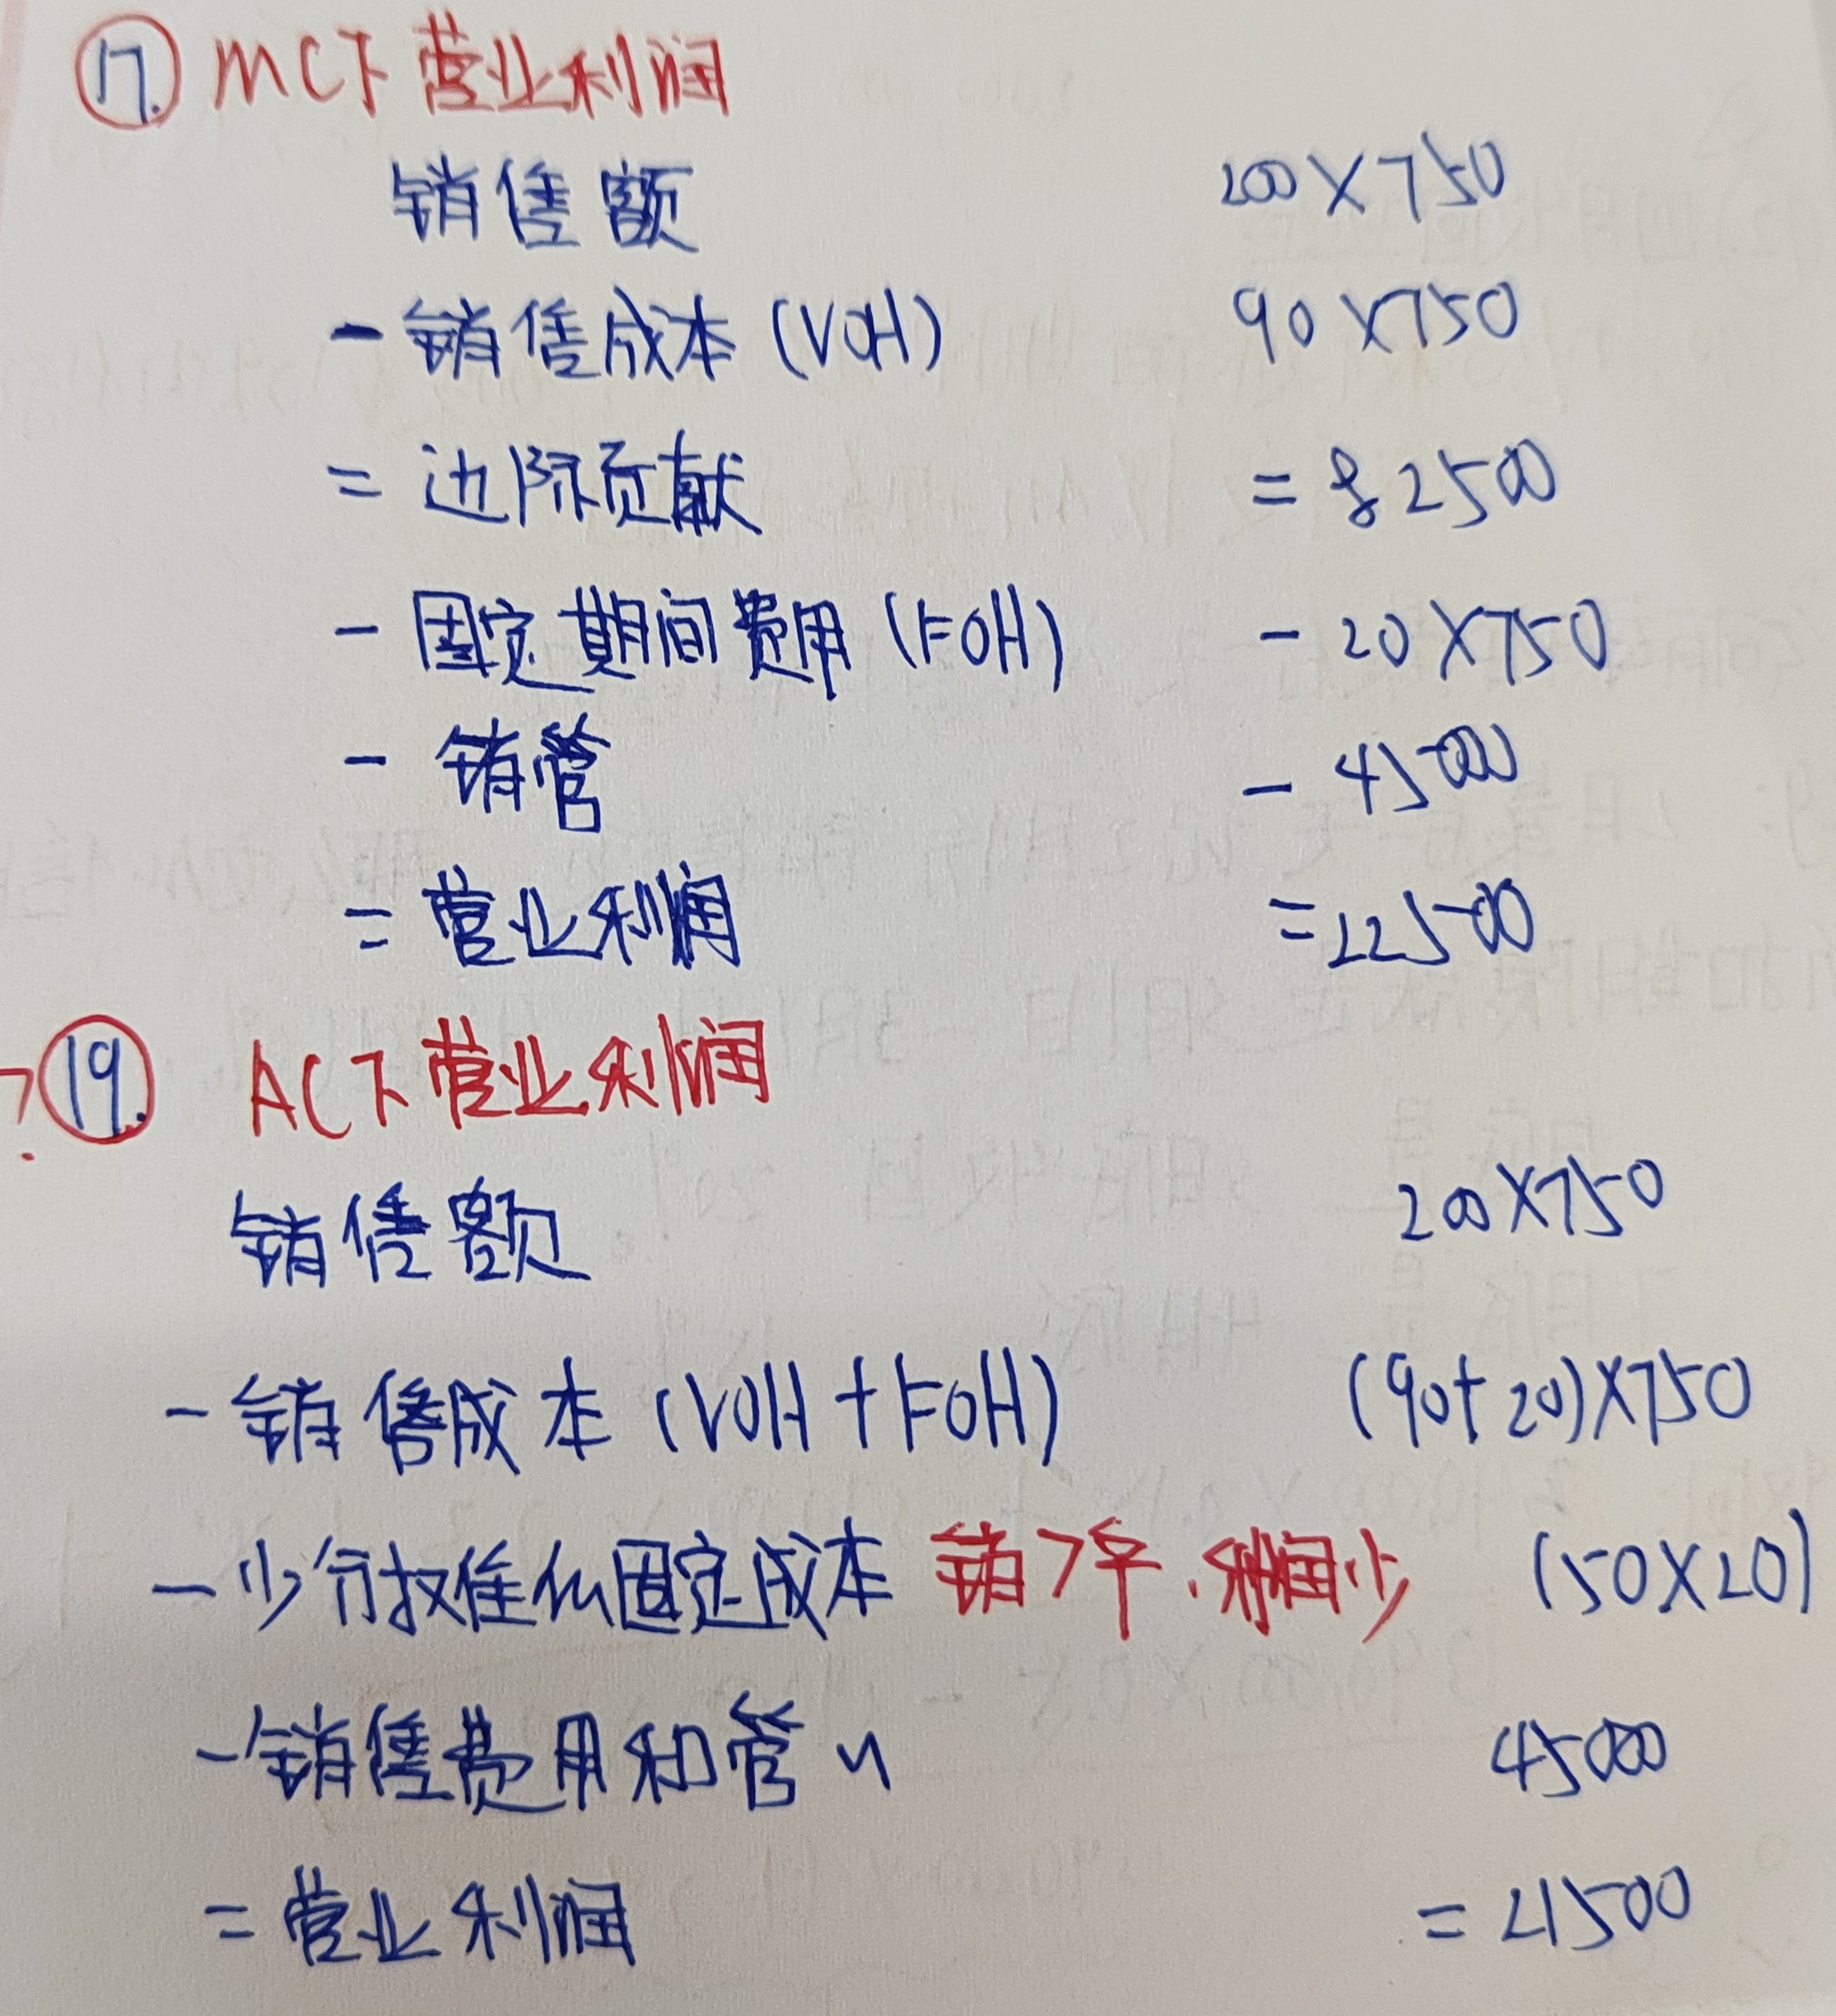 17. MC下营业利润
销售额 200×750
- 销售成本 (VOH) 90×750
= 边际贡献 = 82500
- 固定期间费用 (FOH) - 20×750
- 销管 - 45000
= 营业利润 = 22500
? 19. AC下营业利润
销售额 200×750
- 销售成本 (VOH + FOH) (90+20)×750
- 少分摊固定成本 销>产.利润少 (50×20)
- 销售费用和管 45000
= 营业利润 = 21500